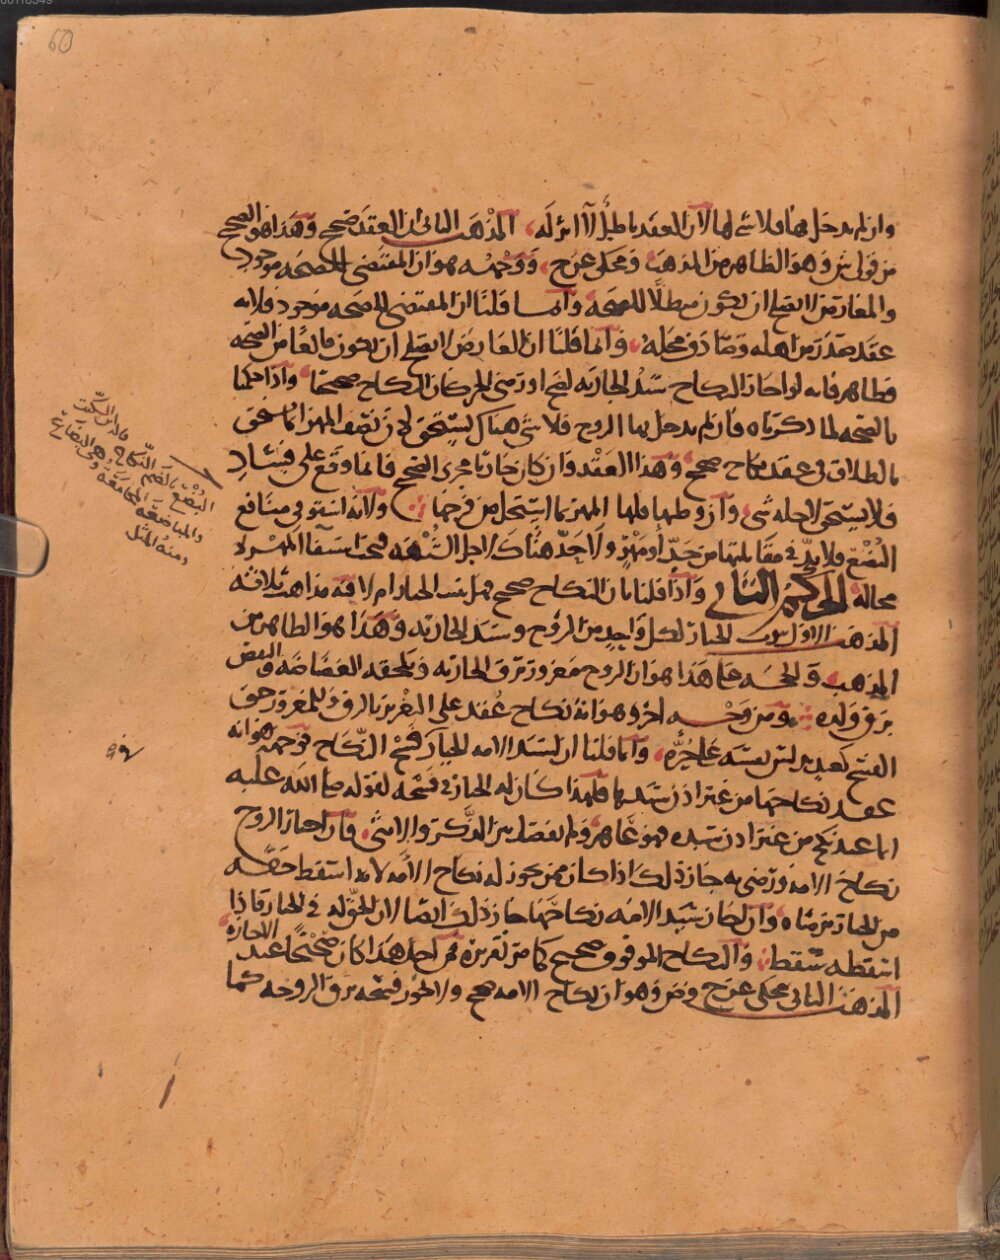 60
وان لم يدخل بها فلا شي لها لان العقد باطل لا اثر له، المذهب الثاني ان العقد صحيح وهذا هو الصحيح
من قولي ش وهو الظاهر من المذهب ومحكي عن ح، ووجهه هو ان المقتضي للصحه موجود
والمعارض لا يصلح ان يكون مبطلا للصحه وانما قلنا ان المقتضي للصحه موجود فلانه
عقد صدر من اهله وصادف محله، وانما قلنا ان العارض لا يصلح ان يكون مانعا من الصحه
فظاهر فانه لو اجاز النكاح سيد الجاريه لصح او رضي الحر كان النكاح صحيحا، واذا حكمنا
بالصحه لما ذكرناه فان لم يدخل بها الزوج فلا شي هناك يستحق لان نصف المهر انما يستحق
بالطلاق في عقد نكاح صحيح، وهذا العقد وان كان جاريا مجرى الصحيح فانما وقع على فساد
فلا يستحق لاجله شي، وان وطيها فلها المهر بما استحل من فرجها، ولانه استوفى منافع
البضع فلا بد في مقابلتها من حد او مهر ولا حد هناك لاجل الشبهه فيجب استيفا المهر لا
محاله الحكم الثاني واذا قلنا بان النكاح صحيح فهل يثبت الخيار ام لا فيه مذاهب ثلاثه
المذهب الاول ثبوت الخيار لكل واحد من الزوج وسيد الجاريه وهذا هو الظاهر من
المذهب، والحجه على هذا هو ان الزوج مغرور برق الجاريه ويلحقه الغضاضه والنقص
برق ولده، ومن وجه اخر وهو انه نكاح عقد على التغرير بالرق وللمغرور حق
الفسخ كمن دلس نفسه على حره، وانما قلنا ان لسيد الامه الخيار في فسخ النكاح فوجهه هو انه
عقد نكاحها من غير اذن سيدها فلهذا كان له الخيار في فسخه لقوله صلى الله عليه
ايما عبد نكح من غير اذن سيده فهو عاهر، ولم يفصل بين الذكر والانثى، فان اجاز الزوج
نكاح الامه ورضي به جاز ذلك اذا كان ممن يجوز له نكاح الامه لانه اسقط حقه
من الخيار برضاه، وان اجاز سيد الامه نكاحها جاز ذلك ايضا لان الحق له في الخيار فاذا
اسقطه سقط، والنكاح الموقوف صحيح كما مر تقريره فمن اجل هذا كان صحيحا عند الاجازه،
المذهب الثاني محكي عن ح وص وهو ان نكاح الامه صحيح ولا يجوز فسخه برق الزوجه كما
قال ابن السكيت
البضع بالضم النكاح وهي البضاع
والمباضعه المجامعه وفي
ومنه المثل